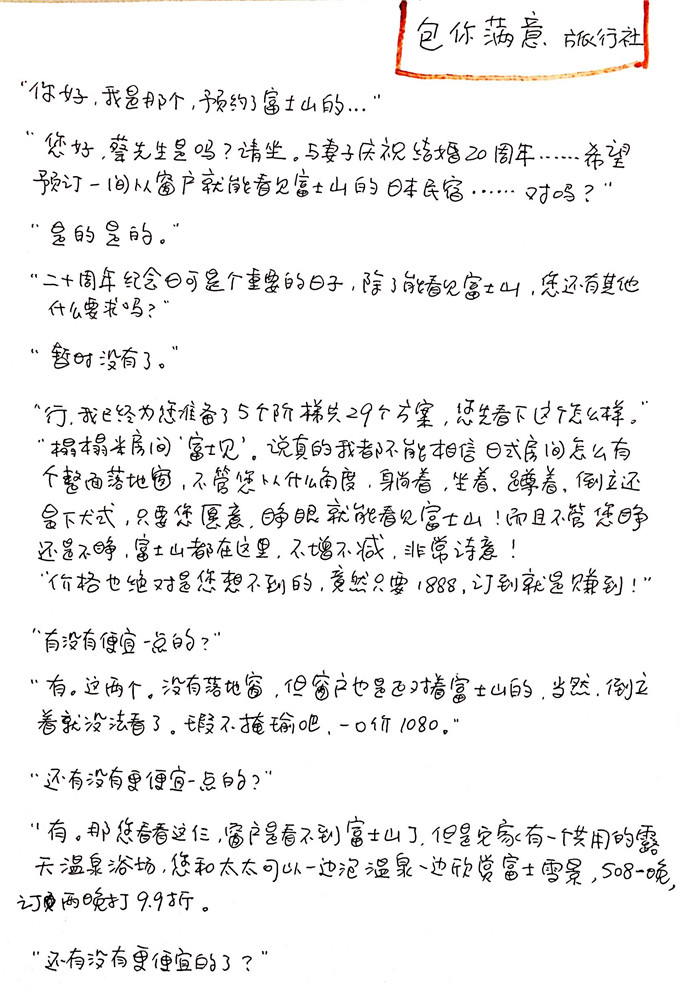 包你满意 旅行社
“你好，我是那个，预约了富士山的...”
“您好，蔡先生是吗？请坐。与妻子庆祝结婚20周年……希望
预订一间从窗户就能看见富士山的日本民宿……对吗？”
“是的是的。”
“二十周年纪念日可是个重要的日子，除了能看见富士山，您还有其他
什么要求吗？”
“暂时没有了。”
“行，我已经为您准备了5个阶梯共29个方案，您先看下这个怎么样。”
“榻榻米房间‘富士见’。说真的我都不能相信日式房间怎么有
个整面落地窗，不管您以什么角度，躺着，坐着、蹲着、倒立还
是下犬式，只要您愿意，睁眼就能看见富士山！而且不管您睁
还是不睁，富士山都在这里，不增不减，非常诗意！
“价格也绝对是您想不到的，竟然只要1888，订到就是赚到！”
“有没有便宜一点的？”
“有。这两个。没有落地窗，但窗户也是正对着富士山的，当然，倒立
着就没法看了。瑕不掩瑜吧，一口价1080。”
“还有没有更便宜一点的？”
“有。那您看看这仨，窗户是看不到富士山了，但是它家有一个共用的露
天温泉浴场，您和太太可以一边泡温泉一边欣赏富士雪景，508一晚，
订两晚打9.9折。
“还有没有更便宜的了？”